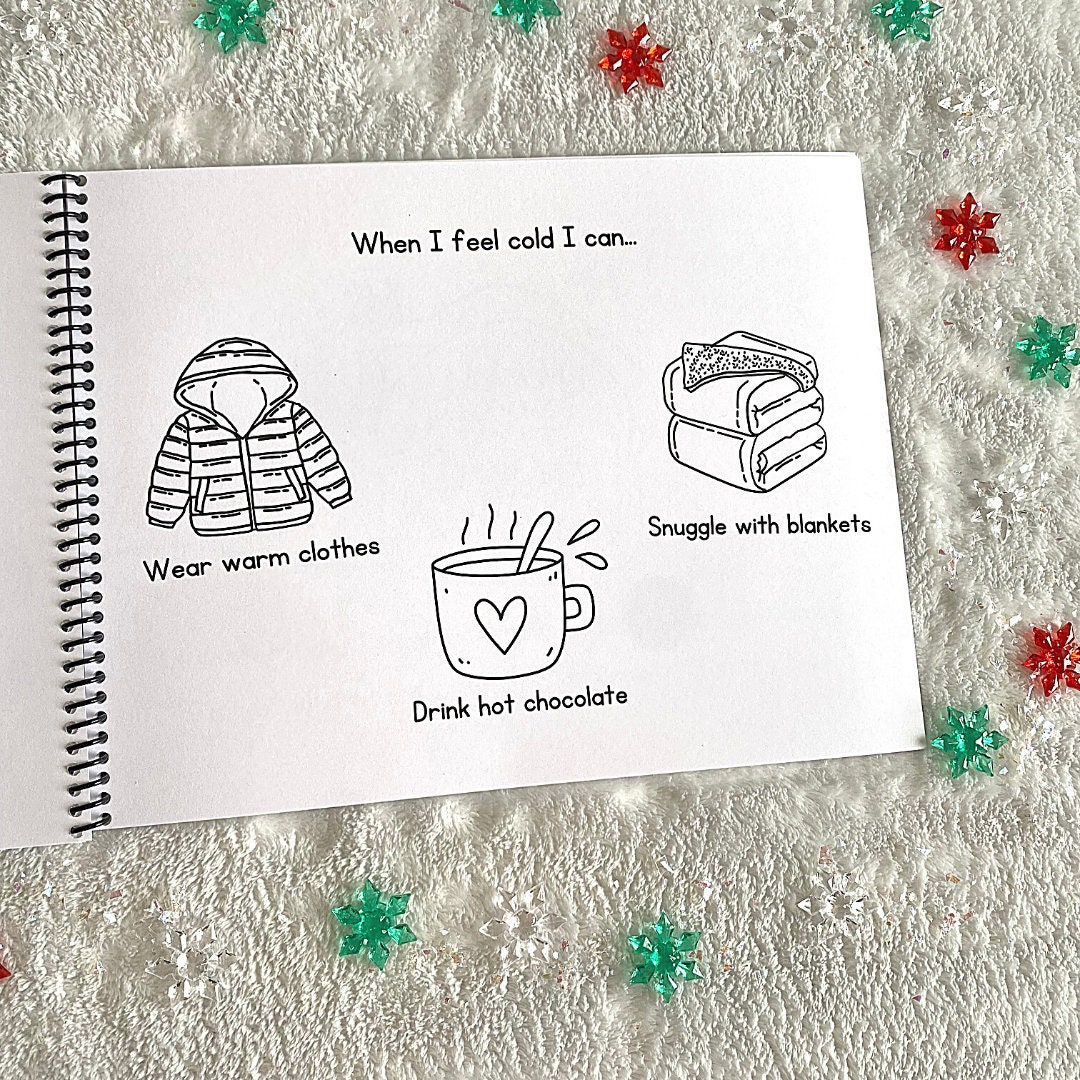 When I feel cold I can...
Wear warm clothes
Snuggle with blankets
Drink hot chocolate